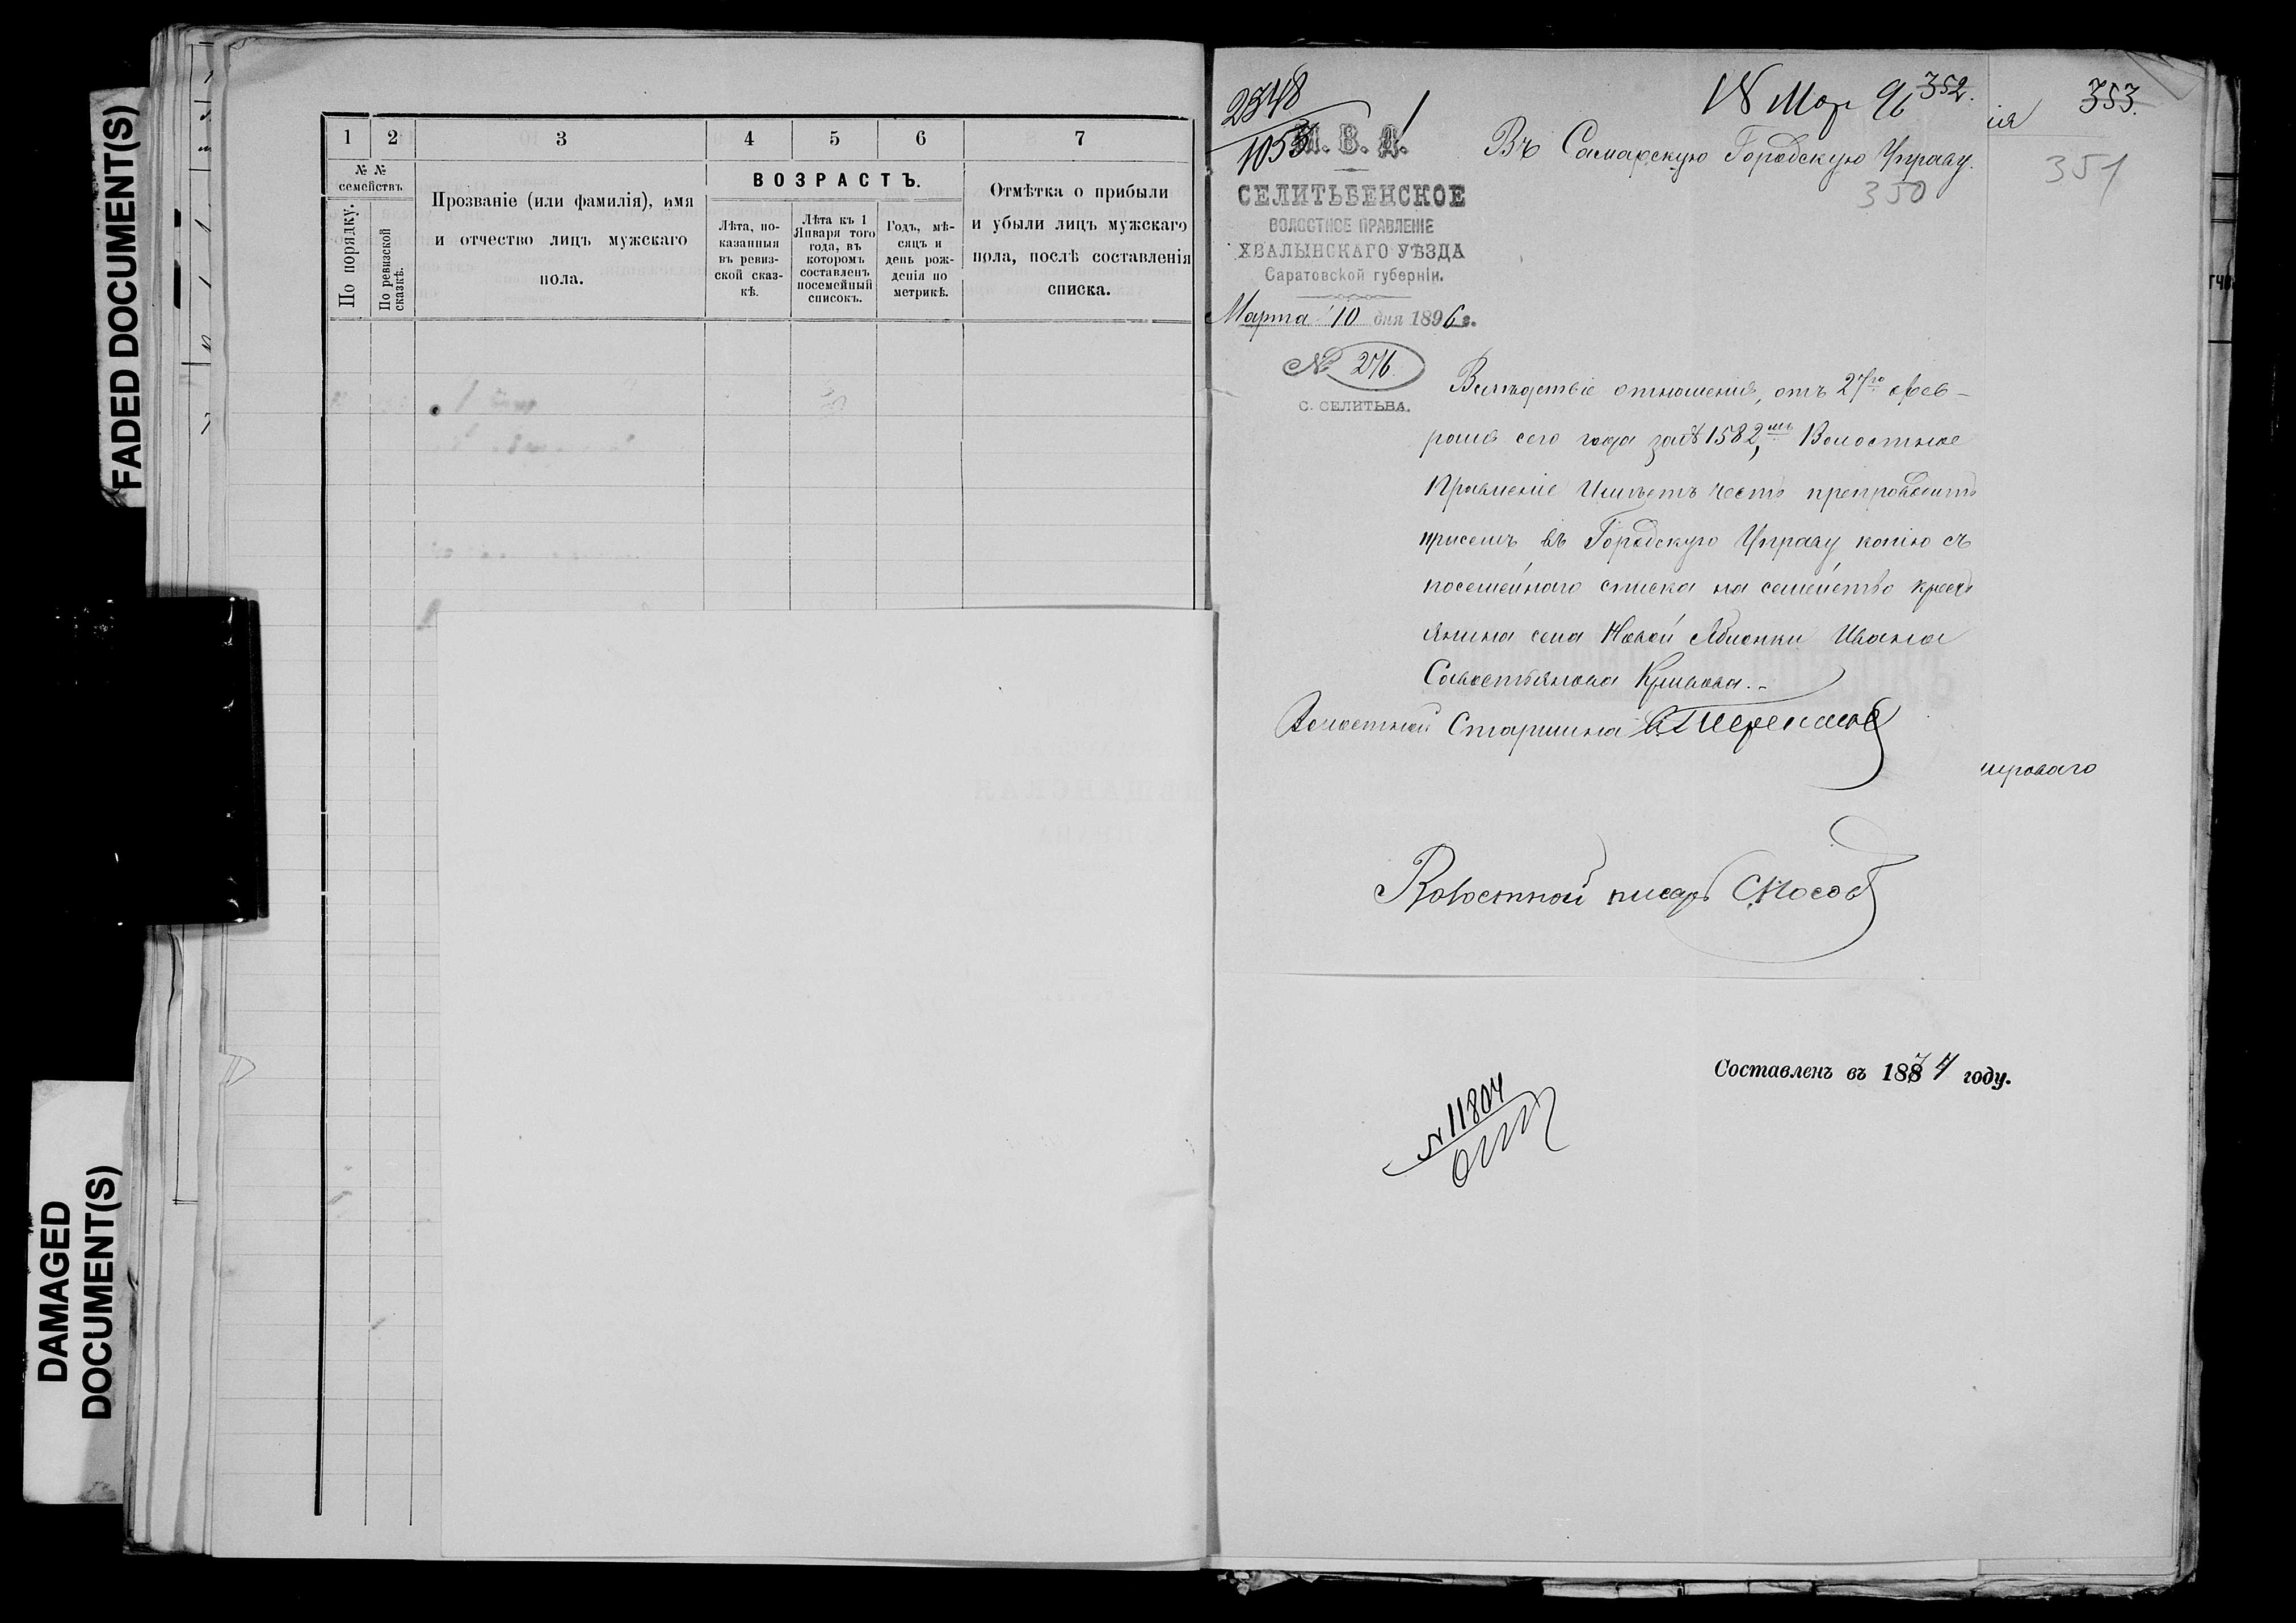 FADED DOCUMENT(S)
DAMAGED
DOCUMENT(S)
1 2 3 4 5 6 7
№ №
семействъ
По порядку.
По ревизской
сказкѣ.
Прозваніе (или фамилія), имя
и отчество лицъ мужскаго
пола.
ВОЗРАСТЪ.
Лѣта, по-
казанныя
въ ревиз-
ской сказ-
кѣ.
Лѣта къ 1
Января того
года, въ
которомъ
составленъ
посемейный
списокъ.
Годъ, мѣ-
сяцъ и
день рож-
денія по
метрикѣ.
Отмѣтка о прибыли
и убыли лицъ мужскаго
пола, послѣ составленія
списка.
2348
1053
18 Мар 96
352.
353.
ія
350
351
М. В. Д.
Въ Самарскую Городскую Управу.
СЕЛИТЬБЕНСКОЕ
ВОЛОСТНОЕ ПРАВЛЕНІЕ
ХВАЛЫНСКАГО УѢЗДА
Саратовской губерніи.
Марта 10 дня 1896 г.
№ 276
С. СЕЛИТЬБА.
Вслѣдствіе отношенія, отъ 27го фев-
раля сего года за № 1582, Волостное
Правленіе Имѣетъ честь препроводить
присемъ въ Городскую Управу копію съ
посемейнаго списка на семейство крест
янина села Новой Яблонки Ивана
Савостьянова Кривова.-
Волостной Старшина
шроваго
Волостной писарь С Носов
Составленъ въ 1874 году.
№ 11804